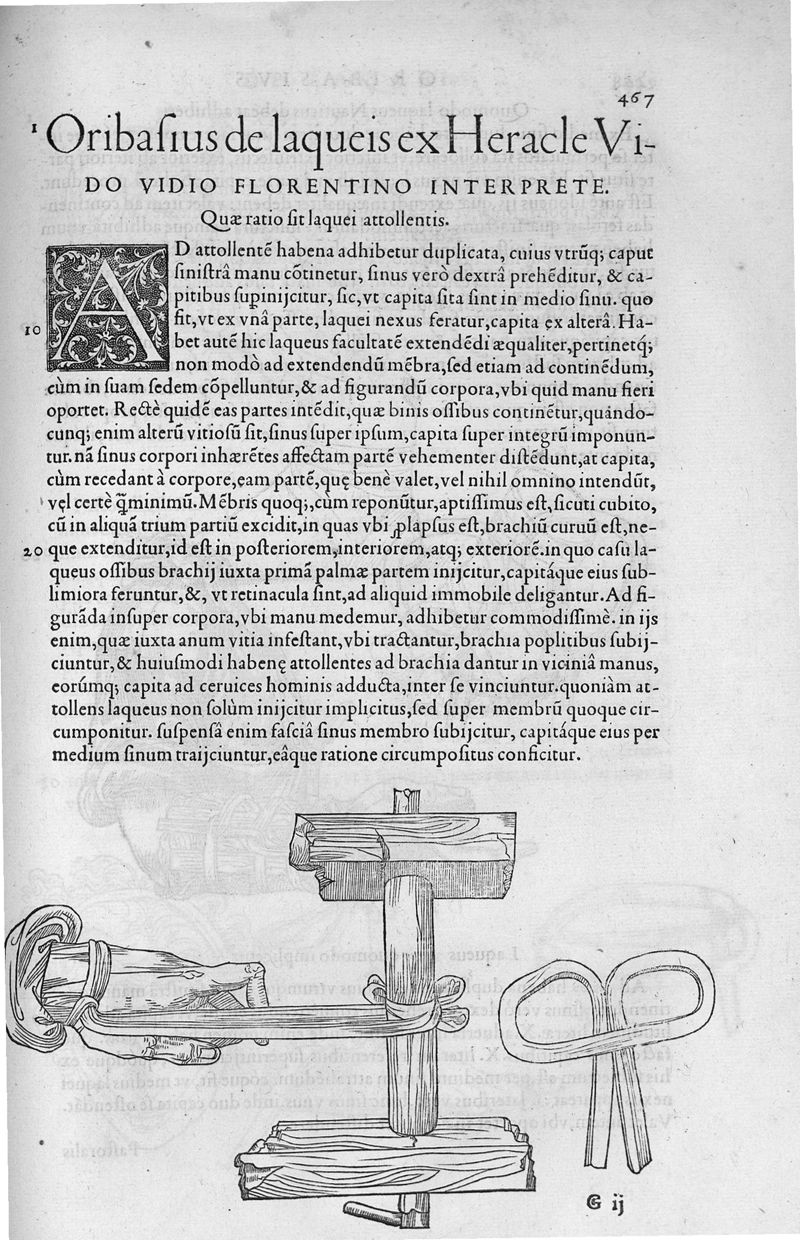 467
1 Oribasius de laqueis ex Heracle Vi-
DO VIDIO FLORENTINO INTERPRETE.
Quæ ratio sit laquei attollentis.
AD attollentē habena adhibetur duplicata, cuius vtrūq; caput
sinistrâ manu cōtinetur, sinus verò dextrâ prehēditur, & ca-
pitibus supinijcitur, sic,vt capita sita sint in medio sinu. quo
10 fit,vt ex vnâ parte, laquei nexus feratur,capita ex alterâ. Ha-
bet autē hic laqueus facultatē extendēdi æqualiter,pertinetq́;
non modò ad extendendū mēbra,sed etiam ad continēdum,
cùm in suam sedem cōpelluntur,& ad figurandū corpora,vbi quid manu fieri
oportet. Rectè quidē eas partes intēdit,quæ binis ossibus continētur,quando-
cunq; enim alterū vitiosū sit,sinus super ipsum,capita super integrū imponun-
tur. nā sinus corpori inhærētes affectam partē vehementer distēdunt,at capita,
cùm recedant à corpore,eam partē,quę benè valet,vel nihil omnino intendūt,
vęl certè q̃minimū.Mēbris quoq;,cùm reponūtur,aptissimus est,sicuti cubito,
cū in aliquā trium partiū excidit,in quas vbi ꝓlapsus est,brachiū curuū est,ne-
20 que extenditur,id est in posteriorem,interiorem,atq; exteriorē.in quo casu la-
queus ossibus brachij iuxta primā palmæ partem inijcitur,capitáque eius sub-
limiora feruntur,&, vt retinacula sint,ad aliquid immobile deligantur.Ad fi-
gurāda insuper corpora,vbi manu medemur, adhibetur commodissimè. in ijs
enim,quæ iuxta anum vitia infestant,vbi tractantur,brachia poplitibus subij-
ciuntur,& huiusmodi habenę attollentes ad brachia dantur in viciniâ manus,
eorúmq; capita ad ceruices hominis adducta,inter se vinciuntur.quoniàm at-
tollens laqueus non solùm inijcitur implicitus,sed super membrū quoque cir-
cumponitur. suspensâ enim fasciâ sinus membro subijcitur, capitáque eius per
medium sinum traijciuntur,eâque ratione circumpositus conficitur.
G ij